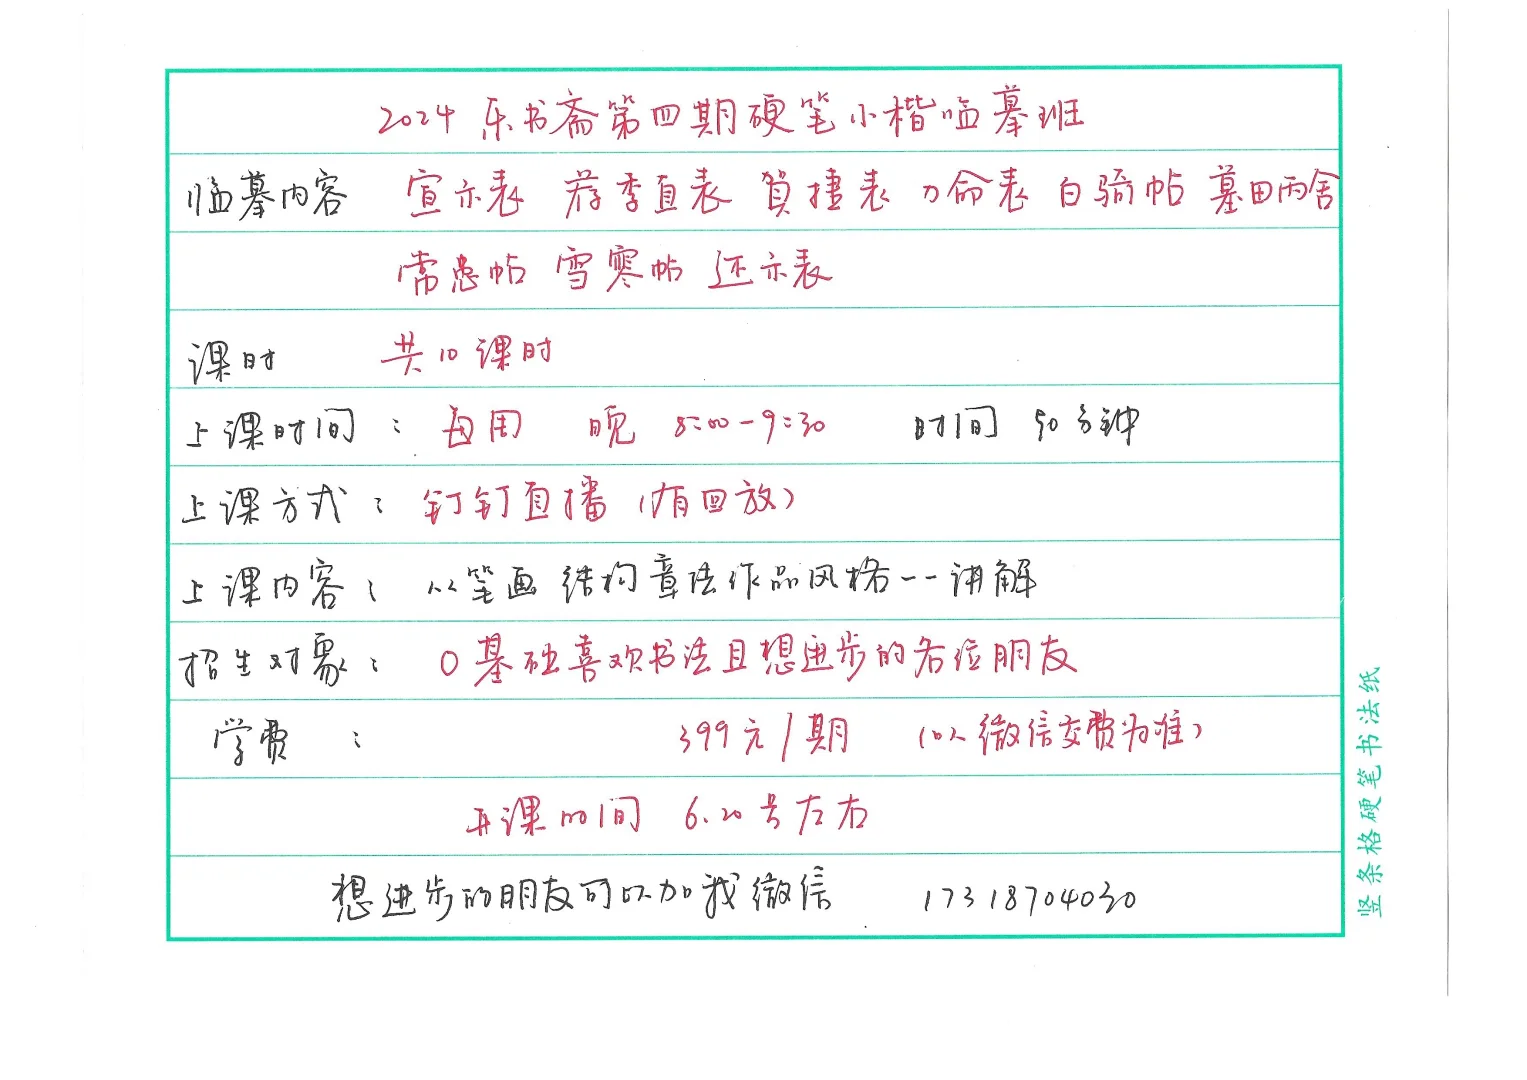 2024 乐书斋第四期硬笔小楷临摹班
临摹内容 宣示表 荐季直表 贺捷表 力命表 白骑帖 墓田丙舍
常患帖 雪寒帖 还示表
课时 共10课时
上课时间: 每周 晚 8:00-9:30 时间 90分钟
上课方式: 钉钉直播(有回放)
上课内容: 以笔画 结构章法作品风格一一讲解
招生对象: 0基础喜欢书法且想进步的各位朋友
学费: 399元/期 (以微信交费为准)
开课时间 6.20号左右
想进步的朋友可以加我微信 17318704030
竖条格硬笔书法纸